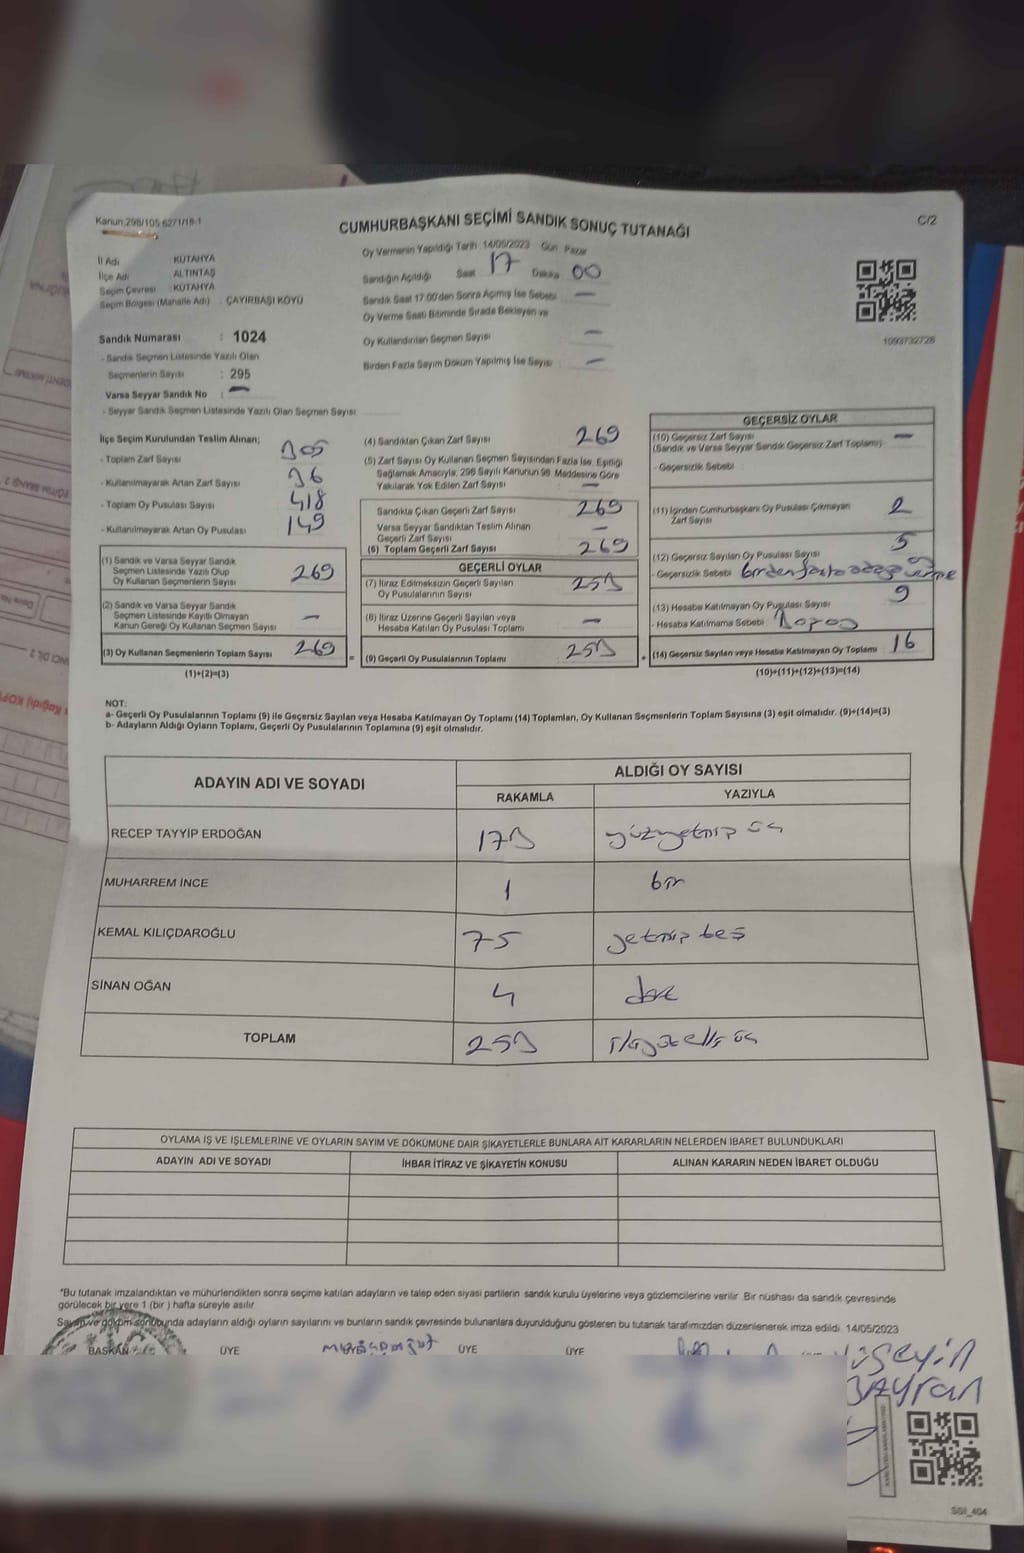 Kanun:298/105-6271/18-1
CUMHURBAŞKANI SEÇİMİ SANDIK SONUÇ TUTANAĞI
C/2
İl Adı KÜTAHYA
İlçe Adı ALTINTAŞ
Seçim Çevresi : KÜTAHYA
Seçim Bölgesi (Mahalle Adı) : ÇAYIRBAŞI KÖYÜ
Oy Vermenin Yapıldığı Tarih 14/05/2023 Gün Pazar
Sandığın Açıldığı Saat 17 Dakika 00
Sandık Saat 17:00'den Sonra Açımış İse Sebebi —
Oy Verme Saati Bitiminde Sırada Bekleyen ve
Oy Kullandırılan Seçmen Sayısı —
Birden Fazla Sayım Döküm Yapılmış İse Sayısı : —
1093732728
Sandık Numarası : 1024
- Sandık Seçmen Listesinde Yazılı Olan
Seçmenlerin Sayısı : 295
Varsa Seyyar Sandık No : —
- Seyyar Sandık Seçmen Listesinde Yazılı Olan Seçmen Sayısı
İlçe Seçim Kurulundan Teslim Alınan;
- Toplam Zarf Sayısı 305
- Kullanılmayarak Artan Zarf Sayısı 36
- Toplam Oy Pusulası Sayısı 418
- Kullanılmayarak Artan Oy Pusulası 149
(1) Sandık ve Varsa Seyyar Sandık
Seçmen Listesinde Yazılı Olup
Oy Kullanan Seçmenlerin Sayısı 269
(2) Sandık ve Varsa Seyyar Sandık
Seçmen Listesinde Kayıtlı Olmayan
Kanun Gereği Oy Kullanan Seçmen Sayısı —
(3) Oy Kullanan Seçmenlerin Toplam Sayısı 269
(1)+(2)=(3)
(4) Sandıktan Çıkan Zarf Sayısı 269
(5) Zarf Sayısı Oy Kullanan Seçmen Sayısından Fazla İse, Eşitliği
Sağlamak Amacıyla; 298 Sayılı Kanunun 98. Maddesine Göre
Yakılarak Yok Edilen Zarf Sayısı —
Sandıkta Çıkan Geçerli Zarf Sayısı 269
Varsa Seyyar Sandıktan Teslim Alınan
Geçerli Zarf Sayısı —
(6) Toplam Geçerli Zarf Sayısı 269
GEÇERLİ OYLAR
(7) İtiraz Edilmeksizin Geçerli Sayılan
Oy Pusulalarının Sayısı 253
(8) İtiraz Üzerine Geçerli Sayılan veya
Hesaba Katılan Oy Pusulası Toplamı —
= (9) Geçerli Oy Pusulalarının Toplamı 253 +
GEÇERSİZ OYLAR
(10) Geçersiz Zarf Sayısı —
(Sandık ve Varsa Seyyar Sandık Geçersiz Zarf Toplamı)
- Geçersizlik Sebebi :
(11) İçinden Cumhurbaşkanı Oy Pusulası Çıkmayan 2
Zarf Sayısı
(12) Geçersiz Sayılan Oy Pusulası Sayısı 5
- Geçersizlik Sebebi birden fazla adaya verme
(13) Hesaba Katılmayan Oy Pusulası Sayısı 9
- Hesaba Katılmama Sebebi :
(14) Geçersiz Sayılan veya Hesaba Katılmayan Oy Toplamı 16
(10)+(11)+(12)+(13)=(14)
NOT:
a- Geçerli Oy Pusulalarının Toplamı (9) ile Geçersiz Sayılan veya Hesaba Katılmayan Oy Toplamı (14) Toplamları, Oy Kullanan Seçmenlerin Toplam Sayısına (3) eşit olmalıdır. (9)+(14)=(3)
b- Adayların Aldığı Oyların Toplamı, Geçerli Oy Pusulalarının Toplamına (9) eşit olmalıdır.
ADAYIN ADI VE SOYADI ALDIĞI OY SAYISI
RAKAMLA YAZIYLA
RECEP TAYYİP ERDOĞAN 173 yüzyetmiş üç
MUHARREM İNCE 1 bir
KEMAL KILIÇDAROĞLU 75 yetmiş beş
SİNAN OĞAN 4 dört
TOPLAM 253 ikiyüz elli üç
OYLAMA İŞ VE İŞLEMLERİNE VE OYLARIN SAYIM VE DÖKÜMÜNE DAİR ŞİKAYETLERLE BUNLARA AİT KARARLARIN NELERDEN İBARET BULUNDUKLARI
ADAYIN ADI VE SOYADI İHBAR İTİRAZ VE ŞİKAYETİN KONUSU ALINAN KARARIN NEDEN İBARET OLDUĞU
*Bu tutanak imzalandıktan ve mühürlendikten sonra seçime katılan adayların ve talep eden siyasi partilerin sandık kurulu üyelerine veya gözlemcilerine verilir. Bir nüshası da sandık çevresinde
görülecek bir yere 1 (bir ) hafta süreyle asılır
Sayım ve döküm sonucunda adayların aldığı oyların sayılarını ve bunların sandık çevresinde bulunanlara duyurulduğunu gösteren bu tutanak tarafımızdan düzenlenerek imza edildi. 14/05/2023
BAŞKAN ÜYE ÜYE ÜYE
Bayran
SGI_404